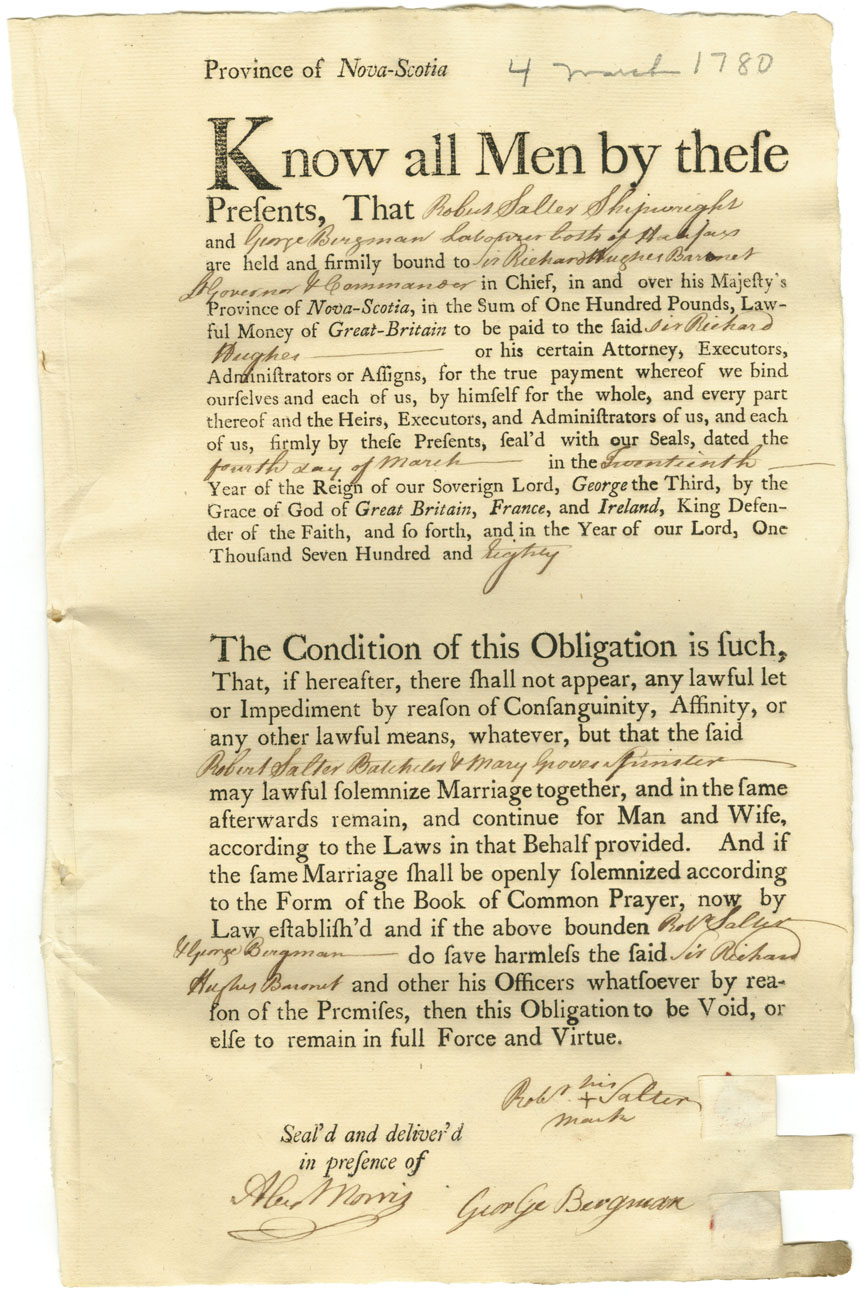 Province of Nova-Scotia 4 March 1780
Know all Men by theſe
Preſents, That Robert Salter Shipwright
and George Bergman Labourer both of Halifax
are held and firmily bound to Sir Richard Hughes Baronet
Lt Governor & Commander in Chief, in and over his Majeſty's
Province of Nova-Scotia, in the Sum of One Hundred Pounds, Law-
ful Money of Great-Britain to be paid to the ſaid Sir Richard
Hughes or his certain Attorney, Executors,
Adminiſtrators or Aſſigns, for the true payment whereof we bind
ourſelves and each of us, by himſelf for the whole, and every part
thereof and the Heirs, Executors, and Adminiſtrators of us, and each
of us, firmly by theſe Preſents, ſeal'd with our Seals, dated the
fourth day of March in the Twentieinth
Year of the Reign of our Soverign Lord, George the Third, by the
Grace of God of Great Britain, France, and Ireland, King Defen-
der of the Faith, and ſo forth, and in the Year of our Lord, One
Thouſand Seven Hundred and Eighty
The Condition of this Obligation is ſuch,
That, if hereafter, there ſhall not appear, any lawful let
or Impediment by reaſon of Conſanguinity, Affinity, or
any other lawful means, whatever, but that the ſaid
Robert Salter Batchelor & Mary Groves Spinster
may lawful ſolemnize Marriage together, and in the ſame
afterwards remain, and continue for Man and Wife,
according to the Laws in that Behalf provided. And if
the ſame Marriage ſhall be openly ſolemnized according
to the Form of the Book of Common Prayer, now by
Law eſtabliſh'd and if the above bounden Robt Salter
& George Bergman do ſave harmleſs the ſaid Sir Richard
Hughes Baronet and other his Officers whatſoever by rea-
ſon of the Premiſes, then this Obligation to be Void, or
elſe to remain in full Force and Virtue.
his
Robt + Salter
mark
Seal'd and deliver'd
in preſence of
Alexr Morris GeorGe Bergman